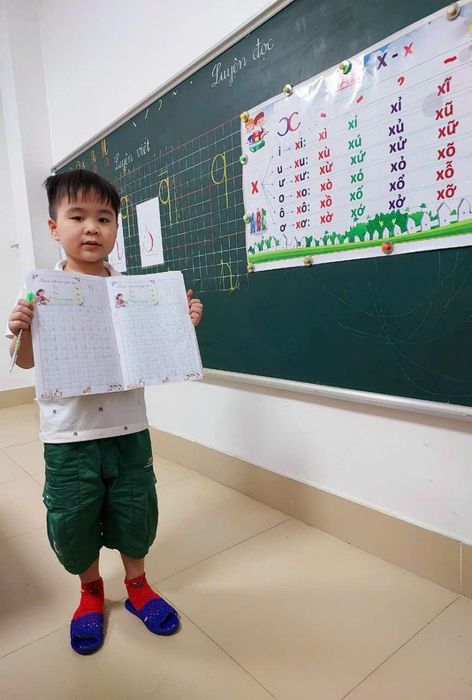 Luyện đọc
Luyện viết
q
q
x - x
x
i xi: xì xí xỉ xĩ
u xu: xù xú xủ xũ
ư xư: xừ xứ xử xữ
x o xo: xò xó xỏ xõ
ô xô: xồ xố xổ xỗ
ơ xơ: xờ xớ xở xỡ